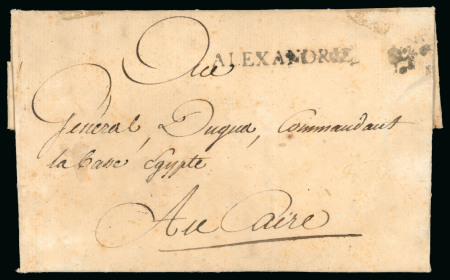 Au
ALEXANDRIE
Général, Dugua, Commandant
la basse Egypte
Au Caire